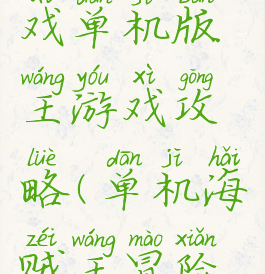 xì dān jī bǎn
戏单机版
wáng yóu xì gōng
王游戏攻
lüè dān jī hǎi
略(单机海
zéi wáng mào xiǎn
贼王冒险